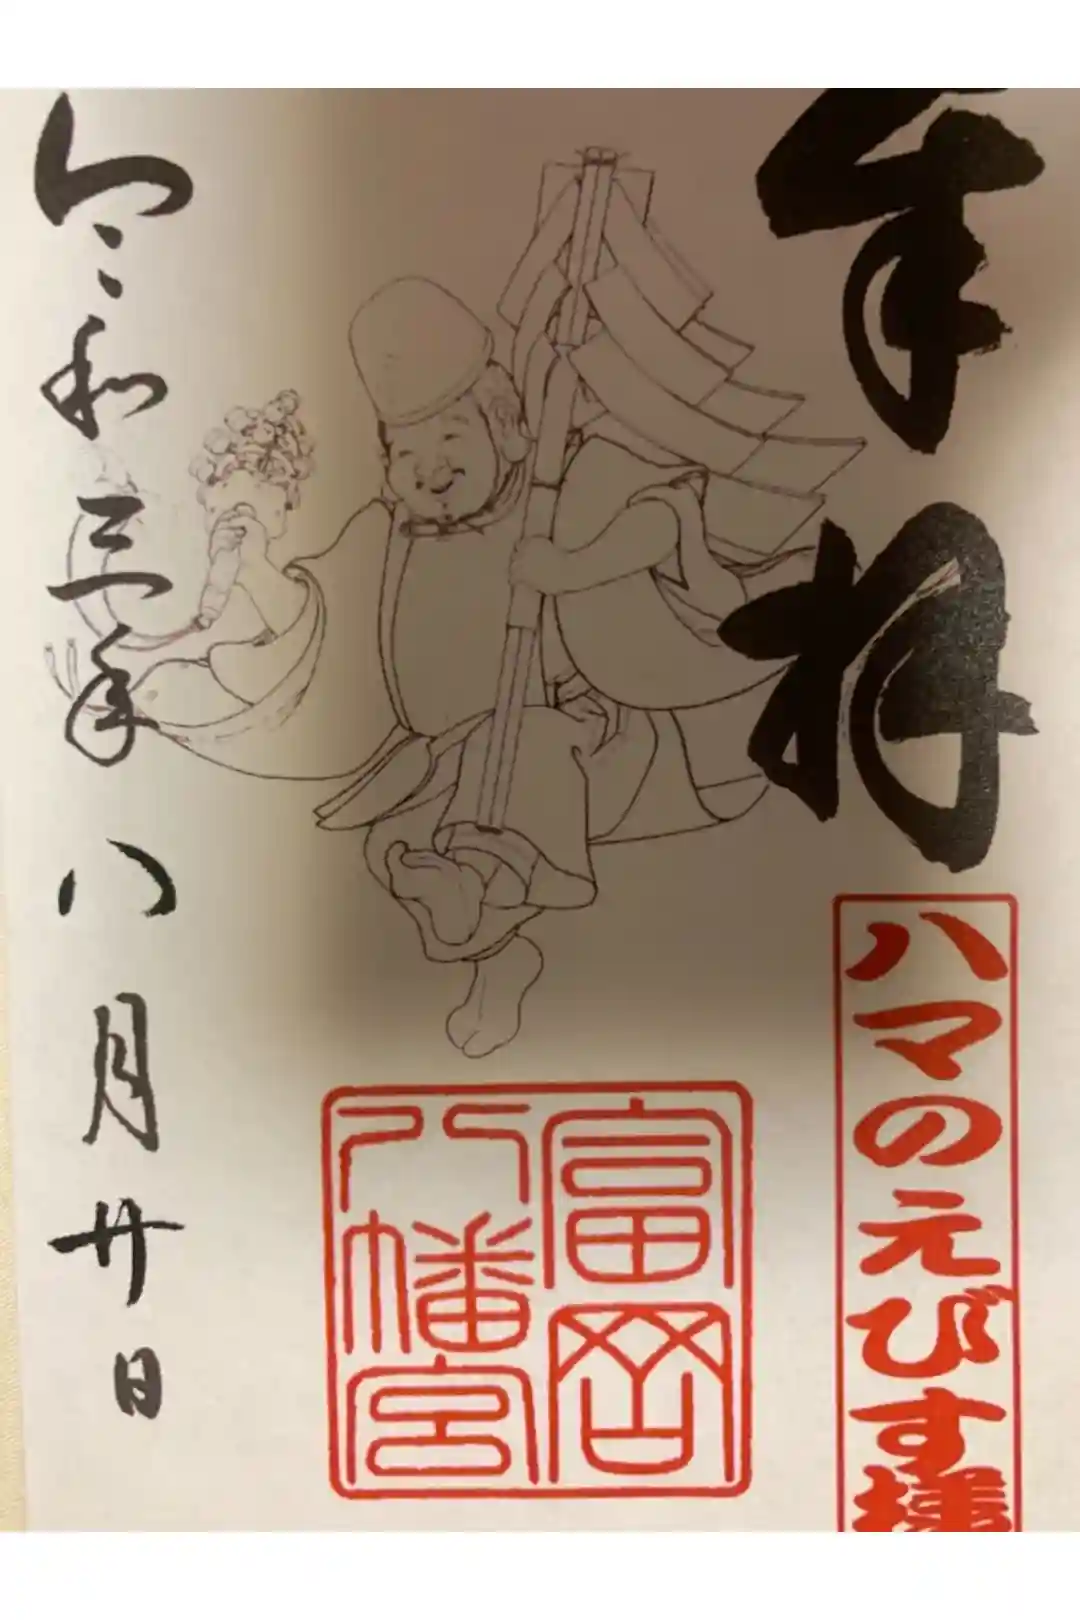 奉拝
ハマの元びす様
富岡
八幡宮
令和三年八月廿日